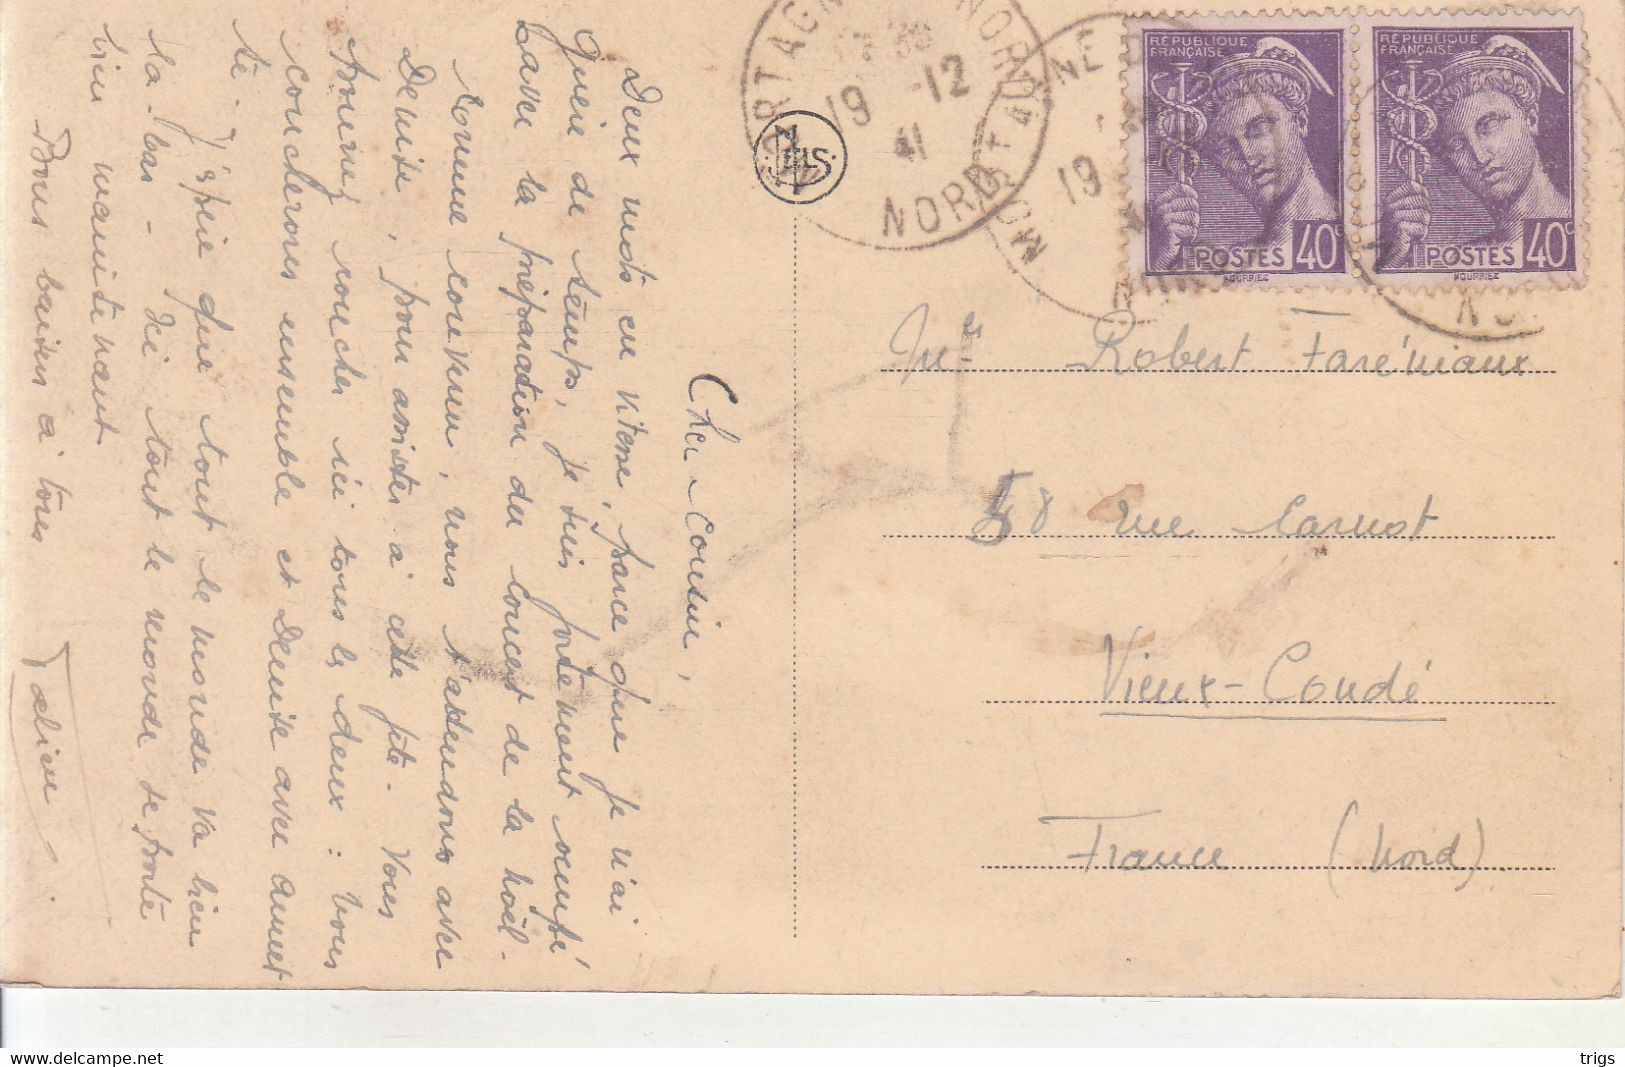 Cher Cousin,
Deux mots en vitesse, parce que je n'ai
guère de temps, je suis fortement occupé
avec la préparation du concert de la Noël.
Comme convenu, nous t'attendons avec
Denise, pour assister à cette fête. Vous
pouvez coucher ici tous les deux : vous
coucherons ensemble et Denise avec
té.
J'espère que tout le monde va bien
là-bas - Ici tout le monde se porte
bien maintenant
Bons baisers à tous
RÉPUBLIQUE FRANÇAISE
POSTES 40c
RÉPUBLIQUE FRANÇAISE
POSTES 40c
MORTAGNE NORD
19 -12
41
NORD
MORTAGNE
19
NELS
Mr Robert
58 rue Carnot
Vieux-Condé
France (Nord)
delcampe.net
trigs